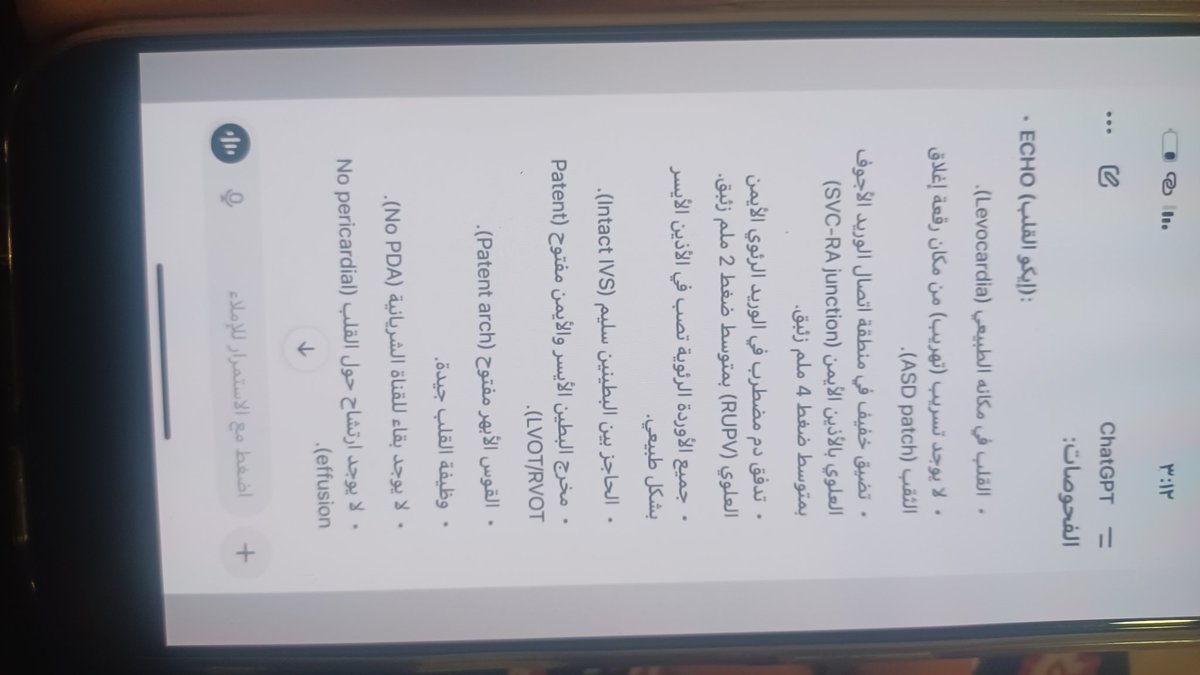 ٣:١٢
ChatGPT
الفحوصات:
• ECHO (إيكو القلب):
• القلب في مكانه الطبيعي (Levocardia).
• لا يوجد تسريب (تهريب) من مكان رقعة إغلاق
الثقب (ASD patch).
• تضيق خفيف في منطقة اتصال الوريد الأجوف
العلوي بالأذين الأيمن (SVC-RA junction)
بمتوسط ضغط 4 ملم زئبق.
• تدفق دم مضطرب في الوريد الرئوي الأيمن
العلوي (RUPV) بمتوسط ضغط 2 ملم زئبق.
• جميع الأوردة الرئوية تصب في الأذين الأيسر
بشكل طبيعي.
• الحاجز بين البطينين سليم (Intact IVS).
• مخرج البطين الأيسر والأيمن مفتوح (Patent
LVOT/RVOT).
• القوس الأبهر مفتوح (Patent arch).
• وظيفة القلب جيدة.
• لا يوجد بقاء للقناة الشريانية (No PDA).
• لا يوجد ارتشاح حول القلب (No pericardial
effusion).
اضغط مع الاستمرار للإملاء